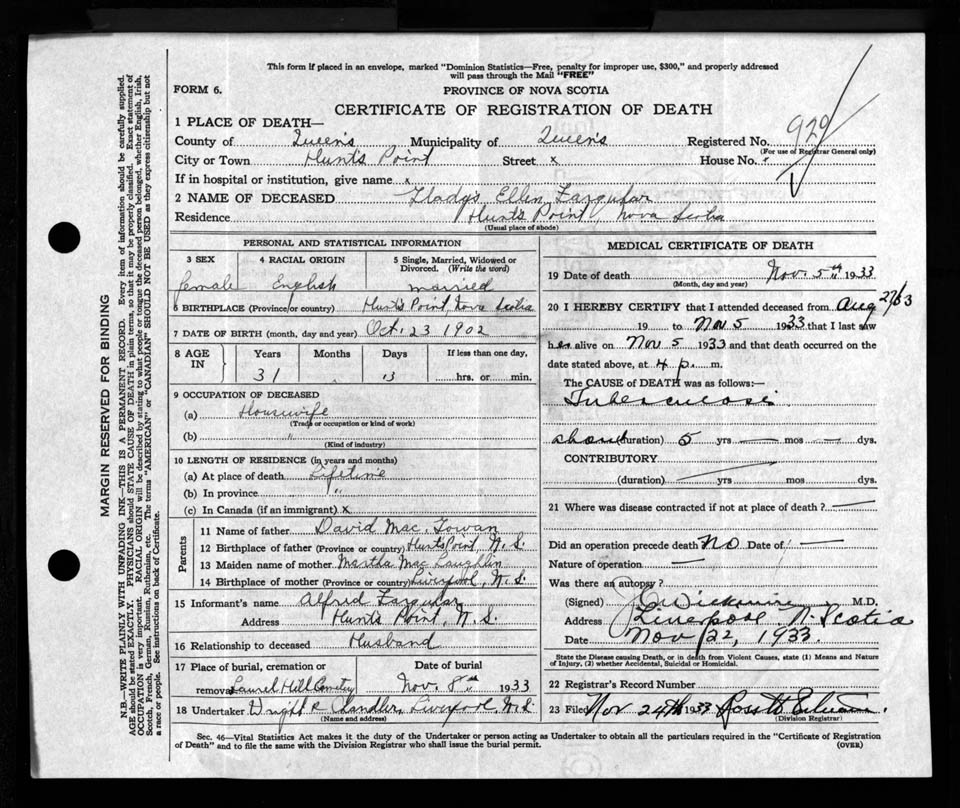 This form if placed in an envelope, marked "Dominion Statistics—Free, penalty for improper use, $300," and properly addressed
will pass through the Mail "FREE"
FORM 6.
PROVINCE OF NOVA SCOTIA
CERTIFICATE OF REGISTRATION OF DEATH
1 PLACE OF DEATH—
County of Queen's Municipality of Queen's Registered No. 929
(For use of Registrar General only)
City or Town Hunt's Point Street x House No.
If in hospital or institution, give name x
2 NAME OF DECEASED Gladys Ellen Farquhar
Residence Hunt's Point, Nova Scotia
(Usual place of abode)
PERSONAL AND STATISTICAL INFORMATION
3 SEX 4 RACIAL ORIGIN 5 Single, Married, Widowed or Divorced. (Write the word)
female English married
6 BIRTHPLACE (Province/or country) Hunt's Point, Nova Scotia
7 DATE OF BIRTH (month, day and year) Oct. 23 1902
8 AGE IN Years Months Days If less than one day,
31 13 hrs. or min.
9 OCCUPATION OF DECEASED
(a) Housewife
(Trade or occupation or kind of work)
(b) "
(Kind of industry)
10 LENGTH OF RESIDENCE (in years and months)
(a) At place of death Lifetime
(b) In province "
(c) In Canada (if an immigrant) x
Parents
11 Name of father David Mac Gowan
12 Birthplace of father (Province or country) Hunts Point, N. S.
13 Maiden name of mother Martha Mac Laughlin
14 Birthplace of mother (Province or country) Liverpool, N. S.
15 Informant's name Alfred Farquhar
Address Hunts Point, N. S.
16 Relationship to deceased Husband
17 Place of burial, cremation or removal Date of burial
Laurel Hill Cemetery Nov. 8th 1933
18 Undertaker Wright & Chandler, Liverpool, N.S.
(Name and address)
MEDICAL CERTIFICATE OF DEATH
19 Date of death Nov. 5th 1933
(Month, day and year)
20 I HEREBY CERTIFY that I attended deceased from Aug 27/33
19 to Nov 5 1933 that I last saw
her alive on Nov 5 1933 and that death occurred on
date stated above, at 4 p. m.
The CAUSE of DEATH was as follows:—
Tuberculosis
about (duration) 5 yrs — mos — dys.
CONTRIBUTORY
(duration) yrs mos dys.
21 Where was disease contracted if not at place of death? —
Did an operation precede death No Date of —
Nature of operation —
Was there an autopsy?
(Signed) Wickwire M.D.
Address Liverpool N. Scotia
Date Nov 22, 1933
State the Disease causing Death, or in death from Violent Causes, state (1) Means and Nature
of Injury, (2) whether Accidental, Suicidal or Homicidal.
22 Registrar's Record Number
23 Filed Nov 24th 1933
(Division Registrar)
Sec. 46—Vital Statistics Act makes it the duty of the Undertaker or person acting as Undertaker to obtain all the particulars required in the "Certificate of Registration
of Death" and to file the same with the Division Registrar who shall issue the burial permit.
(OVER)
MARGIN RESERVED FOR BINDING
N.B.—WRITE PLAINLY WITH UNFADING INK—THIS IS A PERMANENT RECORD. Every item of information should be carefully supplied.
AGE should be stated EXACTLY. PHYSICIANS should STATE CAUSE OF DEATH in plain terms, so that it may be properly classified. Exact statement of
OCCUPATION is very important. RACIAL ORIGIN will be described by stating to what people or tongue the deceased person belonged, whether English, Irish,
Scotch, French, German, Russian, Ruthenian, etc. The terms "AMERICAN" or "CANADIAN" SHOULD NOT BE USED as they express citizenship but not
a race or people. See instructions on back of Certificate.